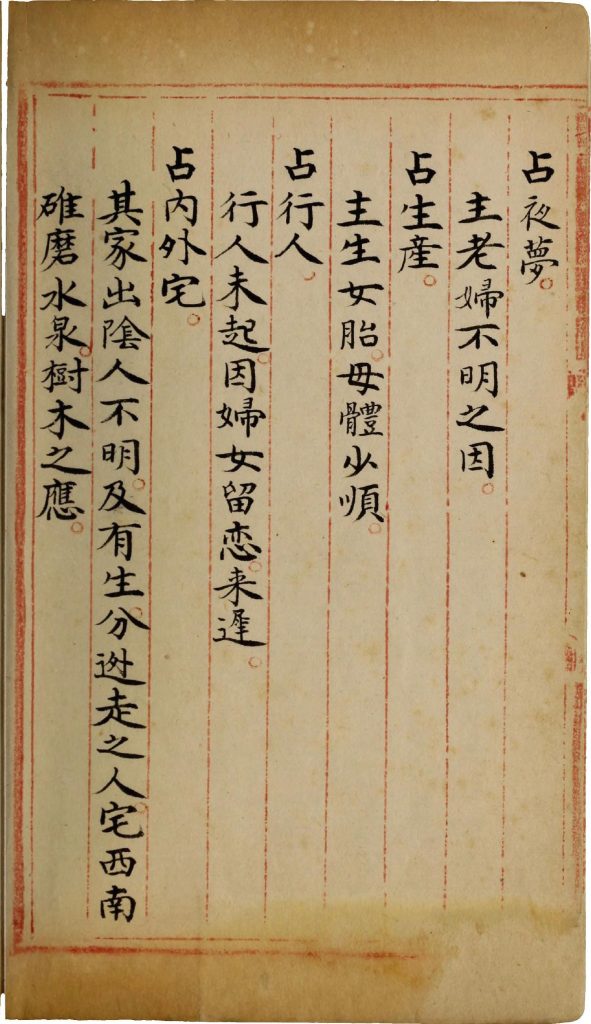 占夜夢。
主老婦不明之因。
占生産。
主生女胎。毋體少順。
占行人。
行人未起。因婦女留恋。来遲。
占内外宅。
其家出陰人不明。及有生分逃走之人。宅西南
碓磨水泉。樹木之應。